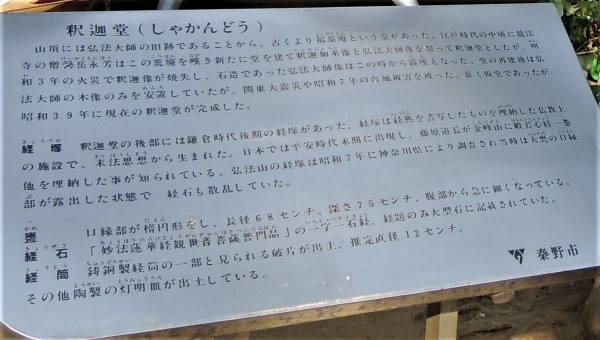 釈迦堂(しゃかんどう)
山頂には弘法大師の旧跡であることから、古くより福泉庵という堂があった。江戸時代の中頃に龍法
寺の僧磬岳永芳はこの荒廃を嘆き新たに堂を建て釈迦如来像と弘法大師像を祭って釈迦堂としたが、明
和3年の火災で釈迦像が焼失し、石造であった弘法大師像はこの時から露座となった。堂の再建後は弘
法大師の木像のみを安置していたが、関東大震災や昭和7年の台風被害を被った。長く仮堂であったが、
昭和39年に現在の釈迦堂が完成した。
経塚 釈迦堂の後部には鎌倉時代後期の経塚があった。経塚は経典を書写したものを埋納した仏教上
の施設で、末法思想から生まれた。日本では平安時代末期に出現し、藤原道長が金峰山に般若心経一巻
他を埋納した事が知られている。弘法山の経塚は昭和7年に神奈川県により調査され当時は大甕の口縁
部が露出した状態で 経石も散乱していた。
甕 口縁部が楕円形をし、長径68センチ、深さ75センチ、腹部から急に細くなっている。
経石 「妙法蓮華経観世音菩薩普門品」の一字一石経、経題のみ大型石に記載されていた。
経筒 鋳銅製経筒の一部と見られる破片が出土、推定直径12センチ。
その他陶製の灯明皿が出土している。
秦野市